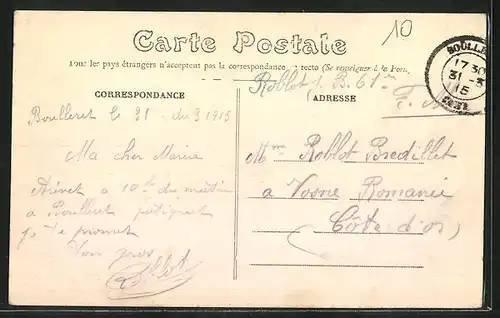 10
Carte Postale
Tous les pays étrangers n'acceptent pas la correspondance au recto (Se renseigner à la Poste)
BOULLE
17 30
31 -3
15
CHER
Roblot J. B. 61
F. M
CORRESPONDANCE
ADRESSE
Boulleret le 31 du 3 1915
Ma cher Marie
Arivet a 10h du matin
a Boulleret
je te promet
Ton
Roblot
Mme Roblot Bredillet
a Vosne Romanée
(Côte d'or)